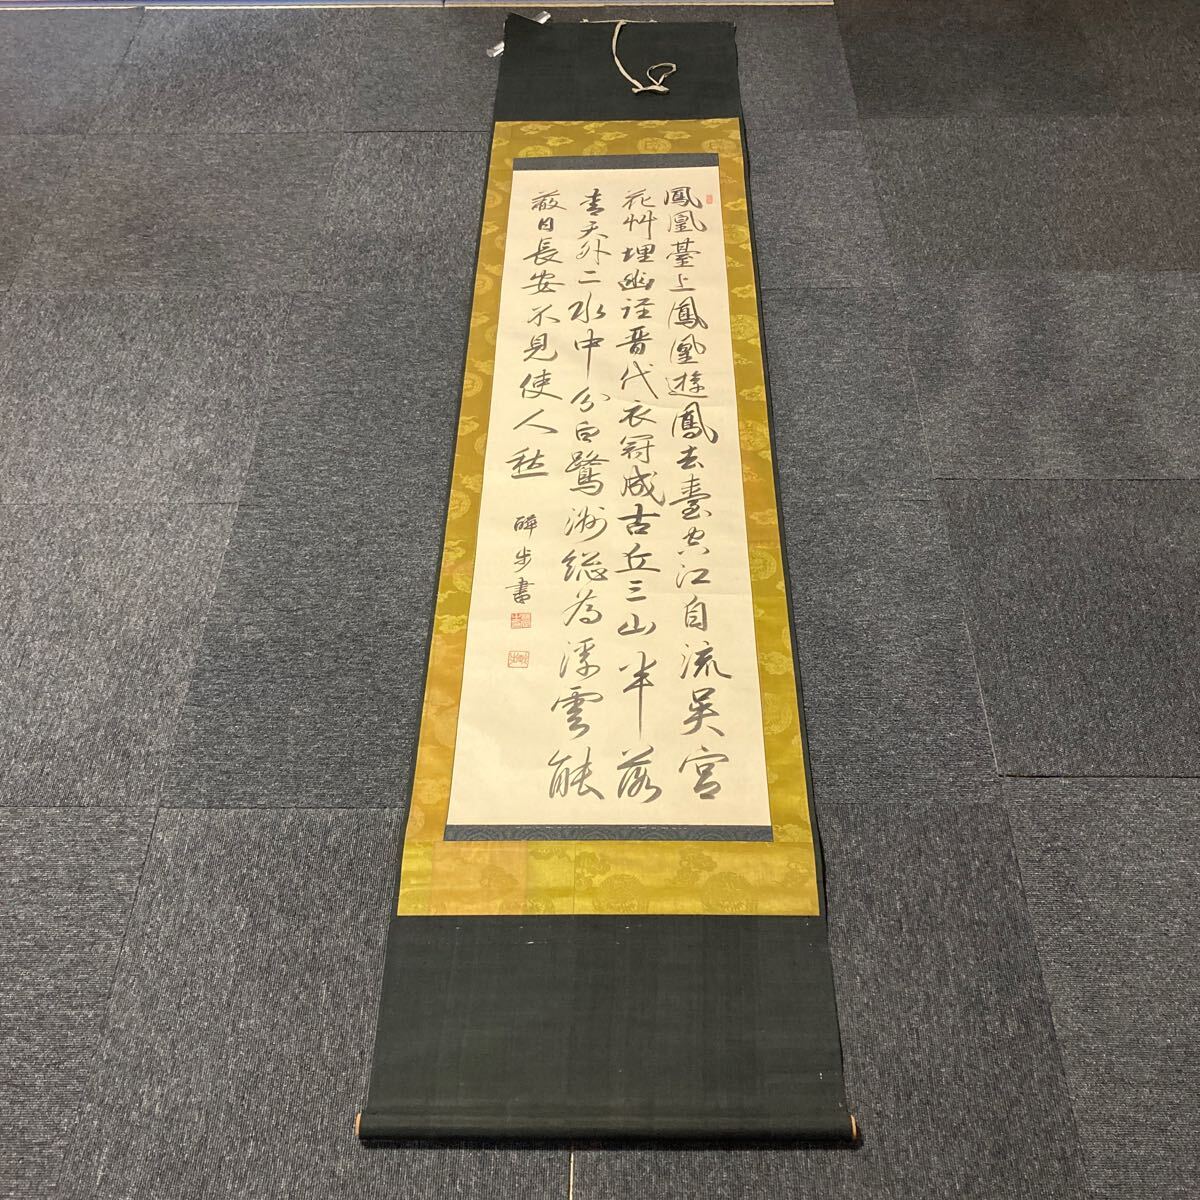 鳳凰臺上鳳凰遊鳳去臺空江自流吳宮
花艸埋幽径晋代衣冠成古丘三山半落
青天外二水中分白鷺洲総為浮雲能
蔽日長安不見使人愁
步書